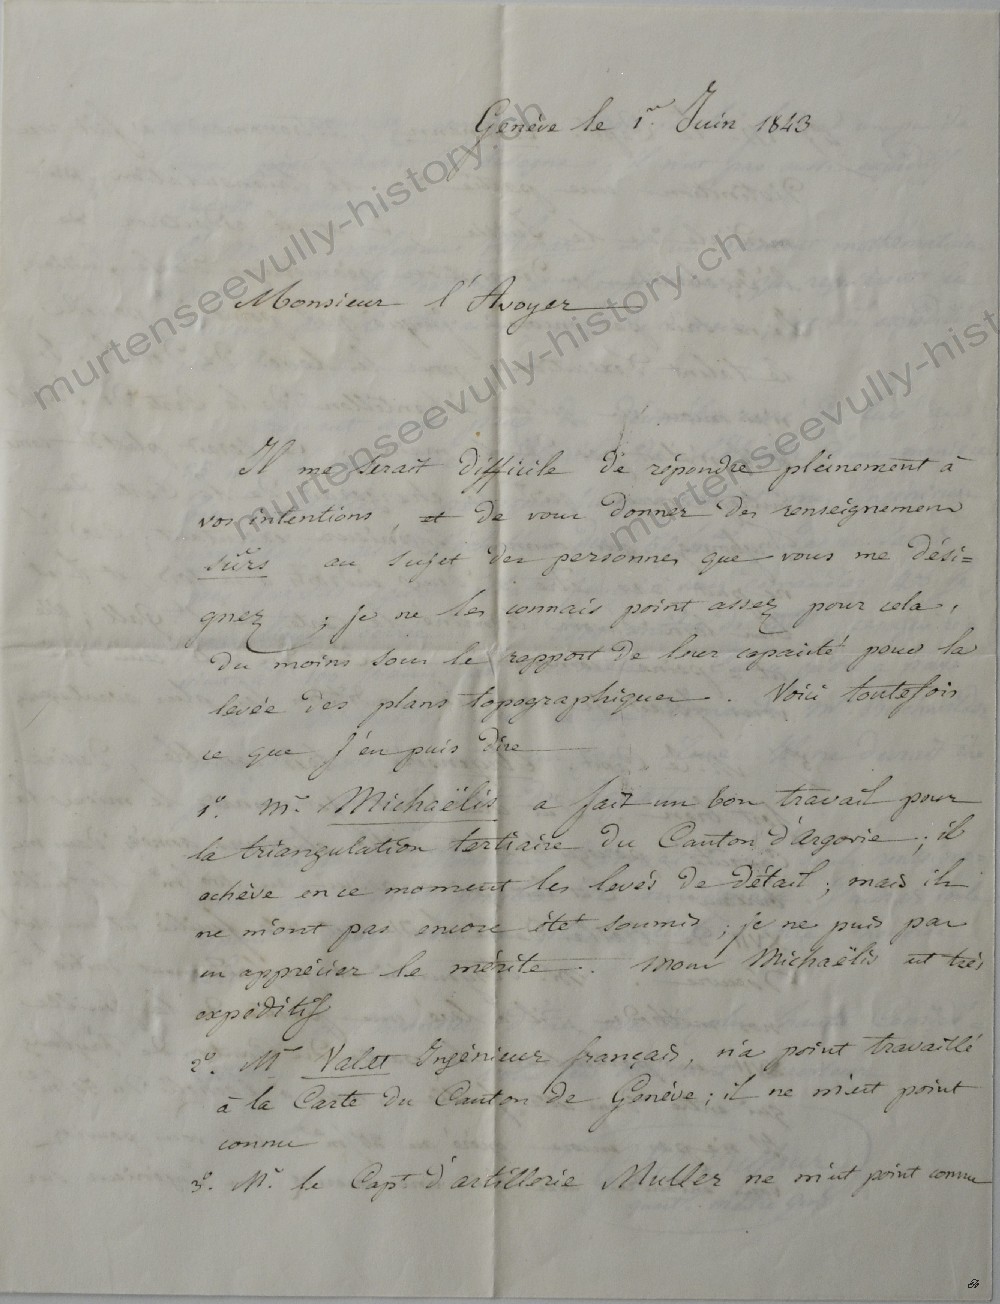 Genève le 1er Juin 1843
Monsieur l'Avoyer
Il me serait difficile de répondre pleinement à
vos intentions, et de vous donner des renseignemens
sûrs au sujet des personnes que vous me dési=
gnez ; je ne les connais point assez pour cela,
du moins sous le rapport de leur capacité pour la
levée des plans topographiques. Voici toutefois
ce que j'en puis dire
1o. Mr. Michaëlis a fait un bon travail pour
la triangulation tertiaire du Canton d'Argovie ; il
achève en ce moment les levés de détail ; mais ils
ne m'ont pas encore été soumis ; je ne puis pas
en apprécier le mérite. Monsr Michaëlis est très
expéditif
2o. Mr Valet Ingénieur français, n'a point travaillé
à la Carte du Canton de Genève ; il ne m'est point
connu
3o. Mr. le Capt d'artillerie Muller ne m'est point connu
murtenseevully-history.ch
murtenseevully-history.ch
murtenseevully-histo